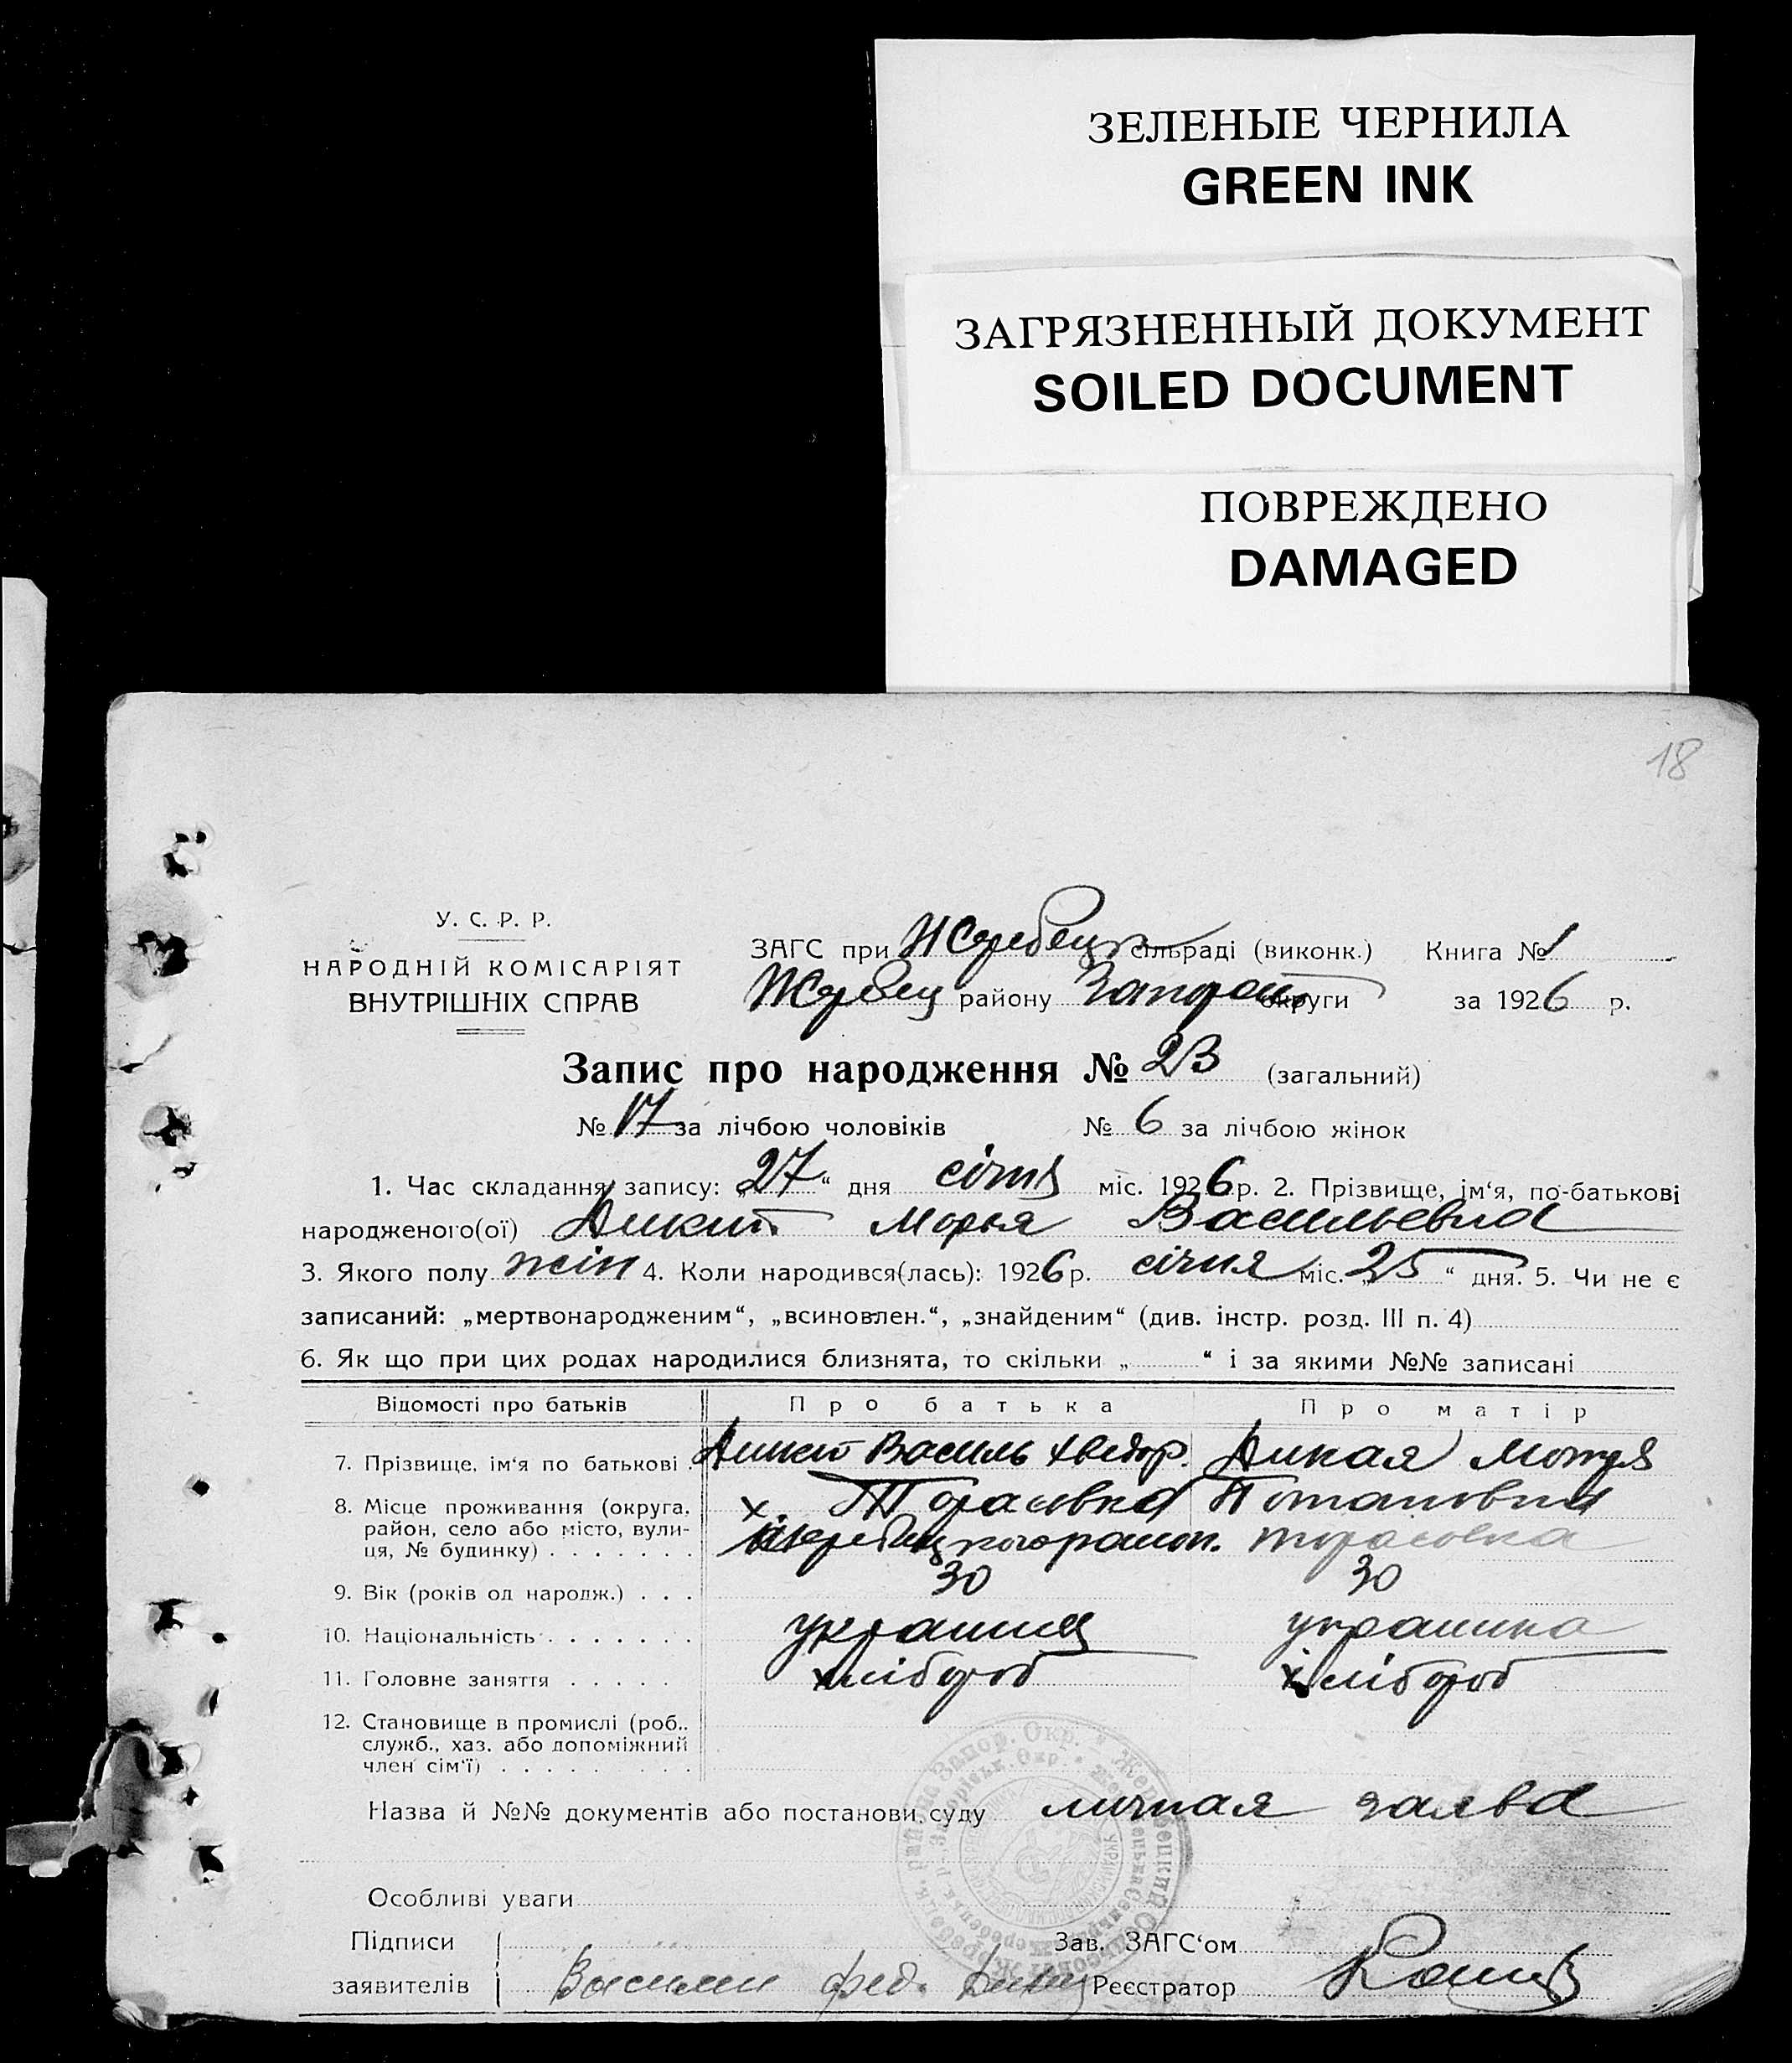 ЗЕЛЕНЫЕ ЧЕРНИЛА
GREEN INK
ЗАГРЯЗНЕННЫЙ ДОКУМЕНТ
SOILED DOCUMENT
ПОВРЕЖДЕНО
DAMAGED
18
У. С. Р. Р.
НАРОДНІЙ КОМІСАРІЯТ
ВНУТРІШНІХ СПРАВ
ЗАГС при Жеребецк сільраді (виконк.) Книга № 1
Жеребец району Запорож округи за 1926 р.
Запис про народження № 23 (загальний)
№ 17 за лічбою чоловіків № 6 за лічбою жінок
1. Час складання запису: „27“ дня січня міс. 1926 р. 2. Прізвище, ім'я, по-батькові
народженого(ої) Дикий Марья Васильевна
3. Якого полу жін 4. Коли народився(лась): 1926 р. січня міс. „25“ дня. 5. Чи не є
записаний: „мертвонародженим“, „всиновлен.“, „знайденим“ (див. інстр. розд. III п. 4)
6. Як що при цих родах народилися близнята, то скільки „ “ і за якими №№ записані
Відомості про батьків Про батька Про матір
7. Прізвище, ім'я по батькові . Дикий Василь Хведор. Дикая Мотря
8. Місце проживання (округа, х. Тарасовка Потаповна
район, село або місто, вули- Жеребецкого район. Тарасовка
ця, № будинку) . . . . . . .
9. Вік (років од народж.) . . . 30 30
10. Національність . . . . . . . украинец украинка
11. Головне заняття . . . . . хлібороб хлібороб
12. Становище в промислі (роб.,
служб., хаз. або допоміжний
член сім'ї) . . . . . . . .
Назва й №№ документів або постанови суду личная заява
Особливі уваги
Підписи Зав. ЗАГС'ом
заявителів Василий фед. Дикий Реєстратор